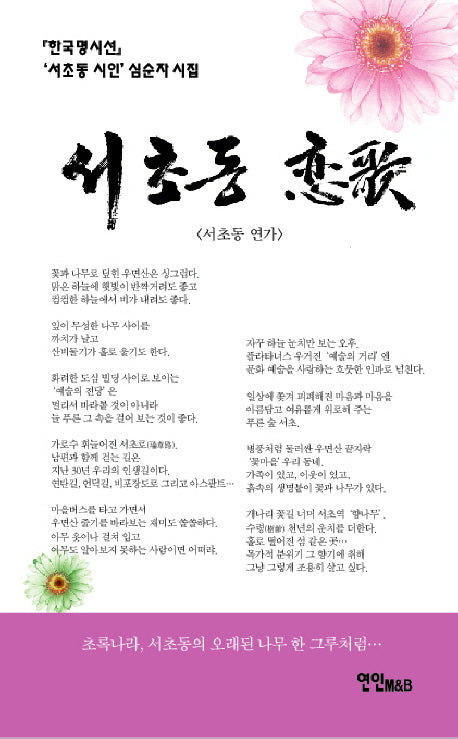 「한국명시선」
‘서초동 시인’ 심순자 시집
서초동 恋歌
<서초동 연가>
꽃과 나무로 덮힌 우면산은 싱그럽다.
맑은 하늘에 햇빛이 반짝거려도 좋고
컴컴한 하늘에서 비가 내려도 좋다.
잎이 무성한 나무 사이를
까치가 날고
산비둘기가 홀로 울기도 한다.
화려한 도심 빌딩 사이로 보이는
‘예술의 전당’은
멀리서 바라볼 것이 아니라
늘 푸른 그 속을 걸어 보는 것이 좋다.
가로수 휘늘어진 서초로(瑞草路).
남편과 함께 걷는 길은
지난 30년 우리의 인생길이다.
연탄길, 언덕길, 비포장도로 그리고 아스팔트…
마을버스를 타고 가면서
우면산 줄기를 바라보는 재미도 쏠쏠하다.
아무 옷이나 걸쳐 입고
아무도 알아보지 못하는 사람이면 어떠랴.
자꾸 하늘 눈치만 보는 오후.
플라타너스 우거진 ‘예술의 거리’엔
문화 예술을 사랑하는 흐뭇한 인파로 넘친다.
일상에 쫓겨 피폐해진 마음과 마음을
아름답고 여유롭게 위로해 주는
푸른 숲 서초.
병풍처럼 둘러싼 우면산 끝자락
‘꽃마을’ 우리 동네.
가족이 있고, 이웃이 있고,
흙속의 생명붙이 꽃과 나무가 있다.
개나리 꽃길 너머 서초역 ‘향나무’.
수령(樹齡) 천년의 운치를 더한다.
홀로 떨어진 섬 같은 곳…
목가적 분위기 그 향기에 취해
그냥 그렇게 조용히 살고 싶다.
초록나라, 서초동의 오래된 나무 한 그루처럼…
연인M&B